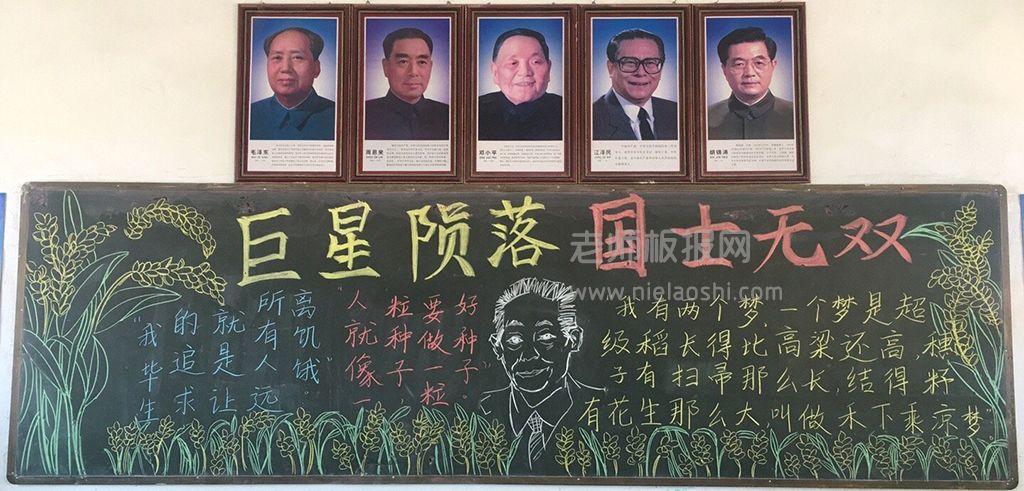 毛泽东
周恩来
邓小平
江泽民
胡锦涛
巨星陨落 国士无双
老师板报网
www.nielaoshi.com
"我毕生
的追求
就是让
所有人远
离饥饿。"
"人就像一
粒种子,
要做一粒
好种子。"
"我有两个梦,一个梦是超
级稻长得比高梁还高,穗
子有扫帚那么长,结得籽
有花生那么大,叫做禾下乘凉梦"